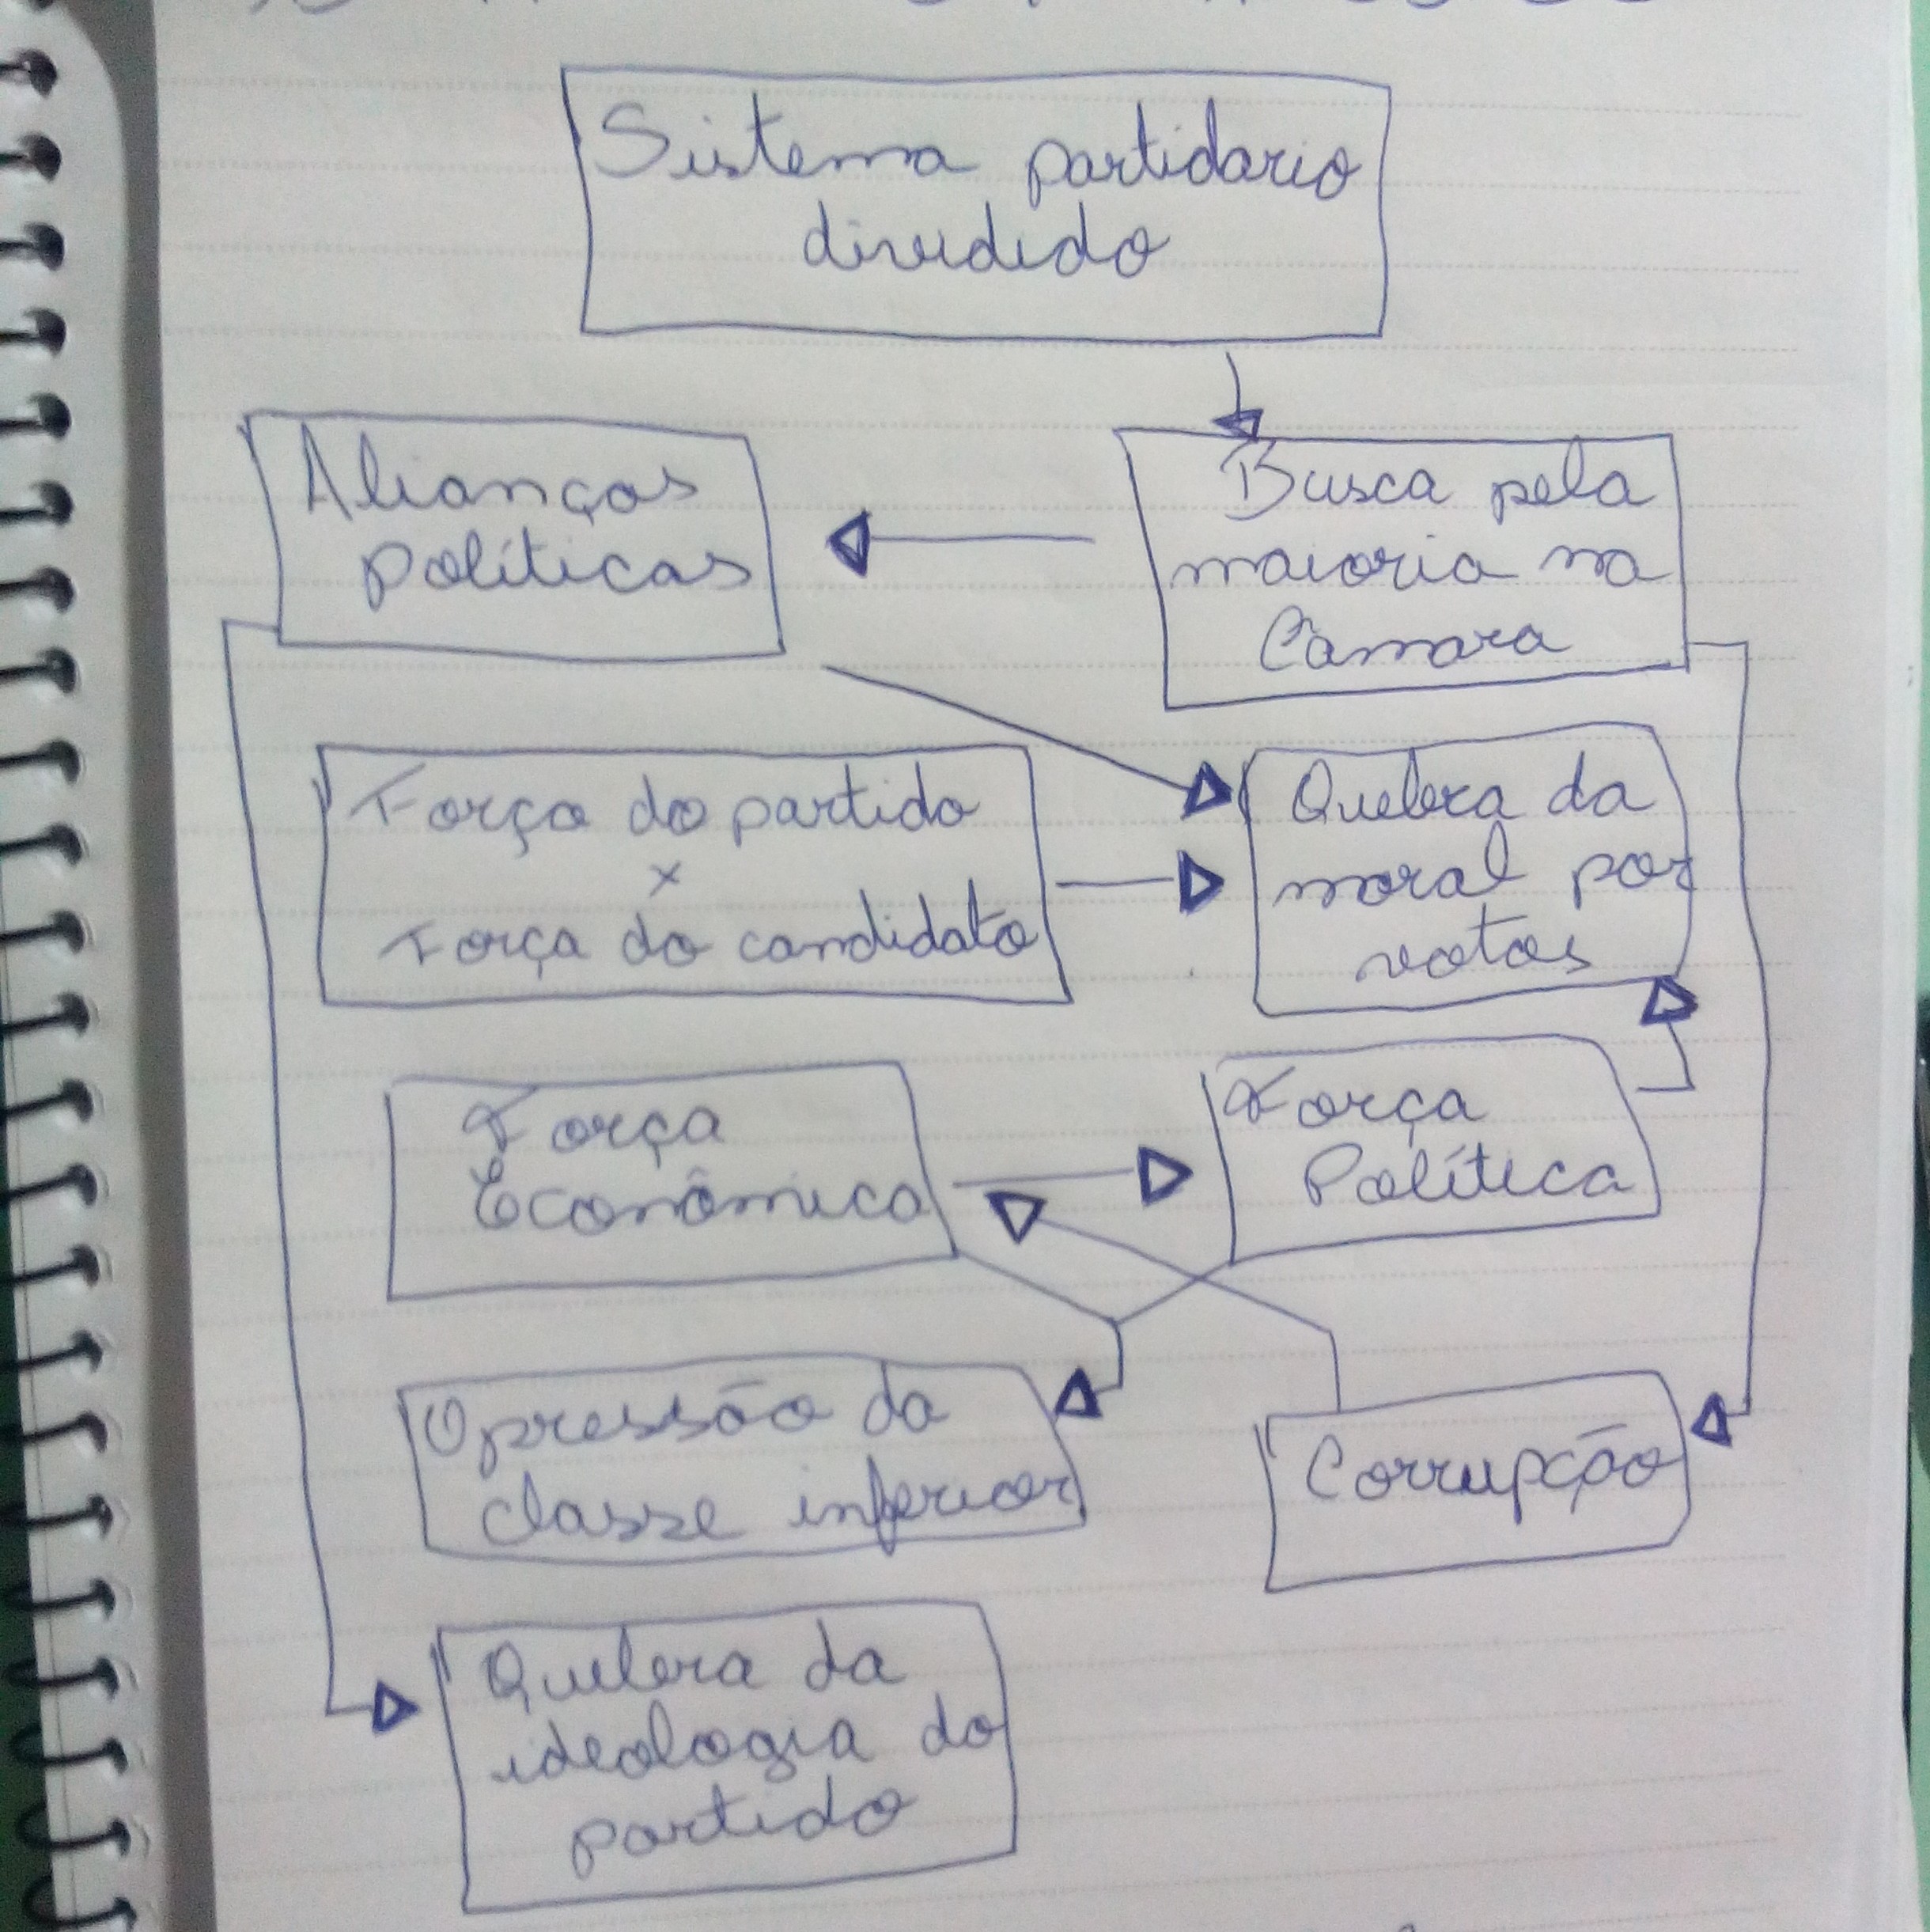 Sistema partidario
dividido
Alianças
políticas
Busca pela
maioria na
Câmara
Força do partido
x
Força do candidato
Quebra da
moral por
votos
Força
Econômica
Força
Política
Opressão da
classe inferior
Corrupção
Quebra da
ideologia do
partido